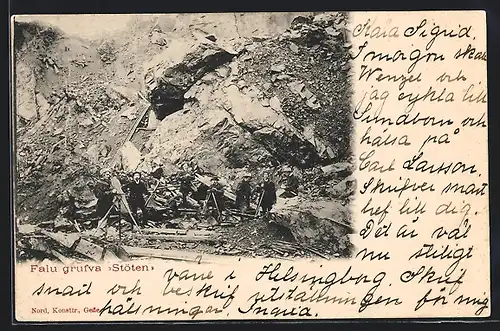 Kära Sigrid,
I morgon skall
Wenzel och
jag cykla till
Sundborn och
hälsa på
Carl Larsson.
Skrifver snart
bref till dig.
Det är väl
nu stiligt
Falu grufva ›Stöten›
vare i Helsingborg. Skrif
snart och beskrif utställningen för mig
Nord. Konsttr., Gefle
hälsningar. Ingria.